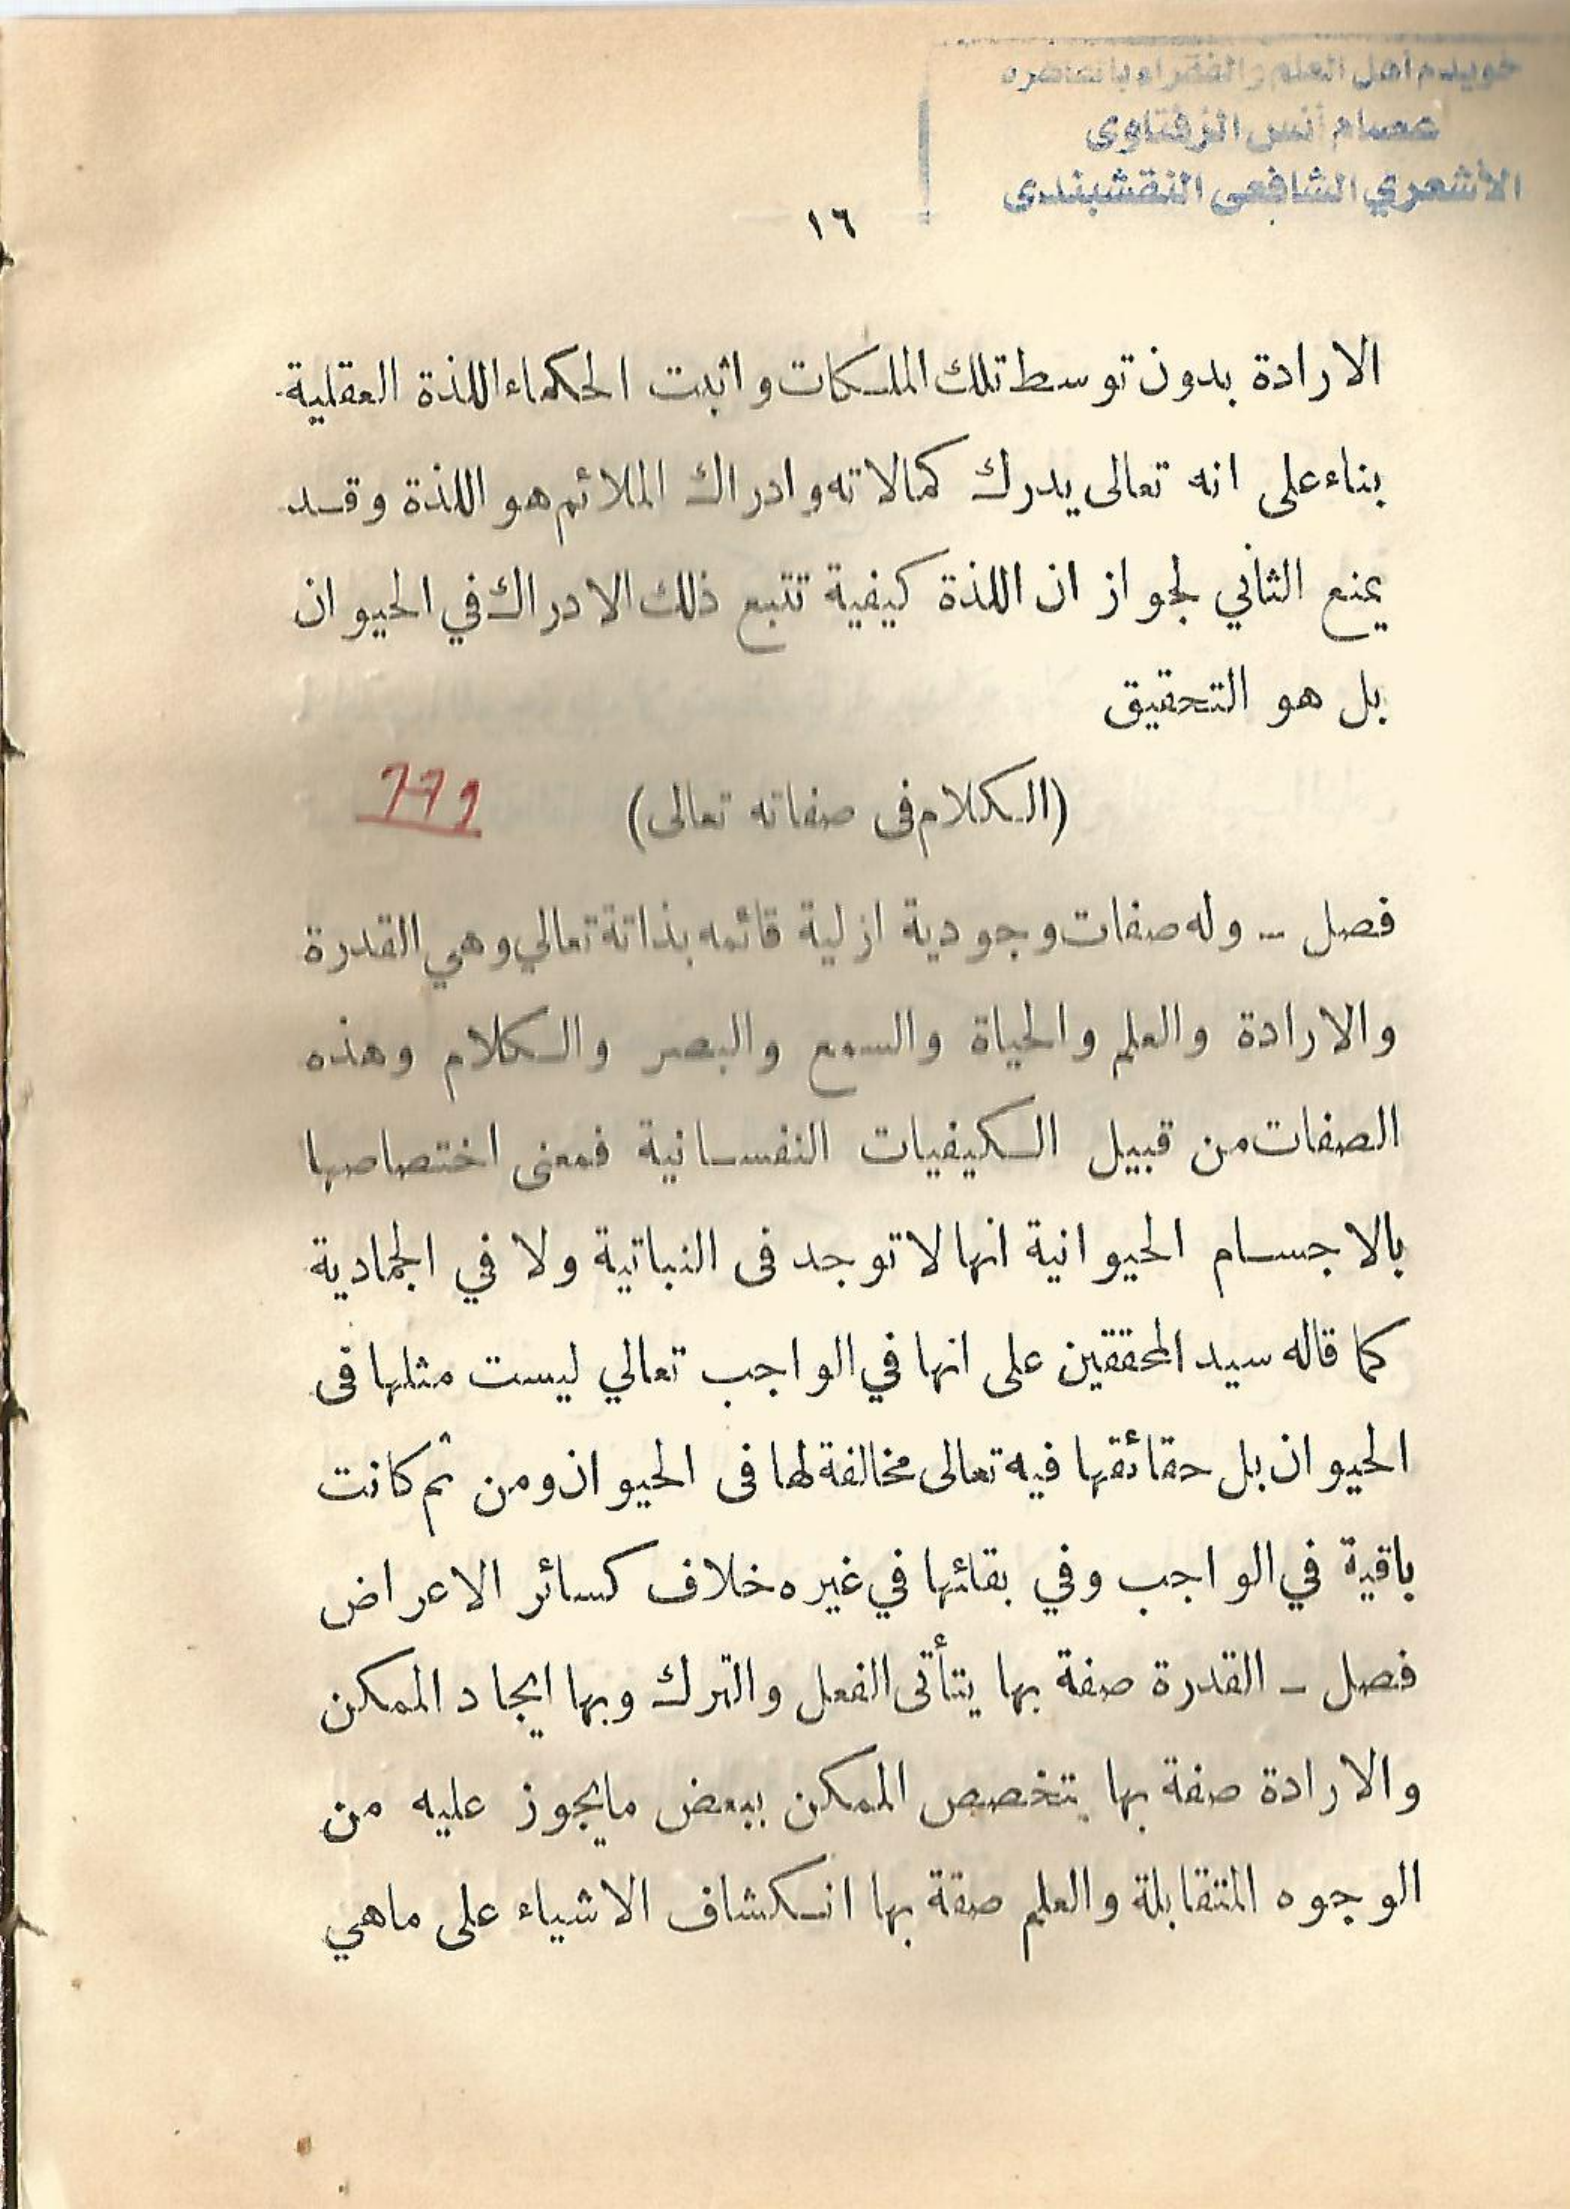 خويدم اهل العلم والفقراء بالقاهرة
عصام أنس الزفتاوى
الأشعري الشافعى النقشبندى
١٦
الارادة بدون توسط تلك الملكات واثبت الحكماء اللذة العقلية
بناء على انه تعالى يدرك كمالاته وادراك الملائم هو اللذة وقد
يمنع الثاني لجواز ان اللذة كيفية تتبع ذلك الادراك في الحيوان
بل هو التحقيق
(الكلام فى صفاته تعالى)
فصل – وله صفات وجودية ازلية قائمه بذاتة تعالي وهي القدرة
والارادة والعلم والحياة والسمع والبصر والكلام وهذه
الصفات من قبيل الكيفيات النفسانية فمعنى اختصاصها
بالاجسام الحيوانية انها لا توجد فى النباتية ولا في الجمادية
كما قاله سيد المحققين على انها في الواجب تعالي ليست مثلها فى
الحيوان بل حقائقها فيه تعالى مخالفة لها فى الحيوان ومن ثم كانت
باقية في الواجب وفي بقائها في غيره خلاف كسائر الاعراض
فصل – القدرة صفة بها يتأتى الفعل والترك وبها ايجاد الممكن
والارادة صفة بها تتخصص الممكن ببعض مايجوز عليه من
الوجوه المتقابلة والعلم صقة بها انكشاف الاشياء على ماهي